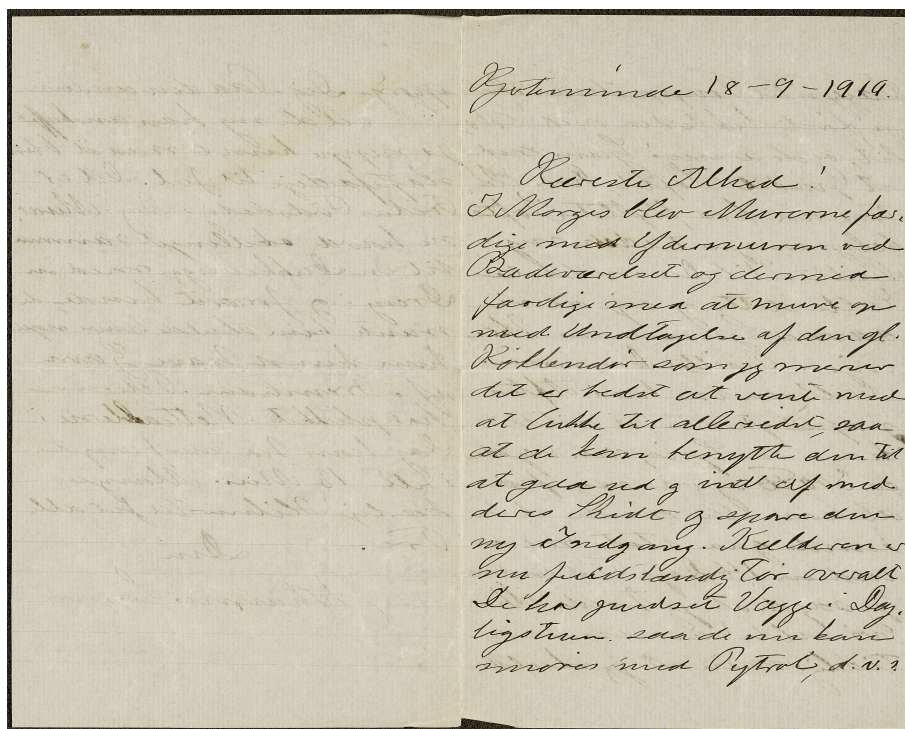 Kjerteminde 18-9-1919.
Kæreste Alhed!
I Morges blev Murerne fær-
dige med Ydermuren ved
Badeværelset og dermed
færdige med at mure op
med Undtagelse af den gl.
Køkkendør som jeg mener
det er bedst at vente med
at lukke til allersidst, saa
at de kan benytte den til
at gaa ud og ind af med
deres Skidt og spare den
ny Indgang. Kælderen er
nu fuldstændig tør overalt
De har pudset Vægge i Dag-
ligstuen saa de nu kan
smøres med Pytrol, d.v.s.